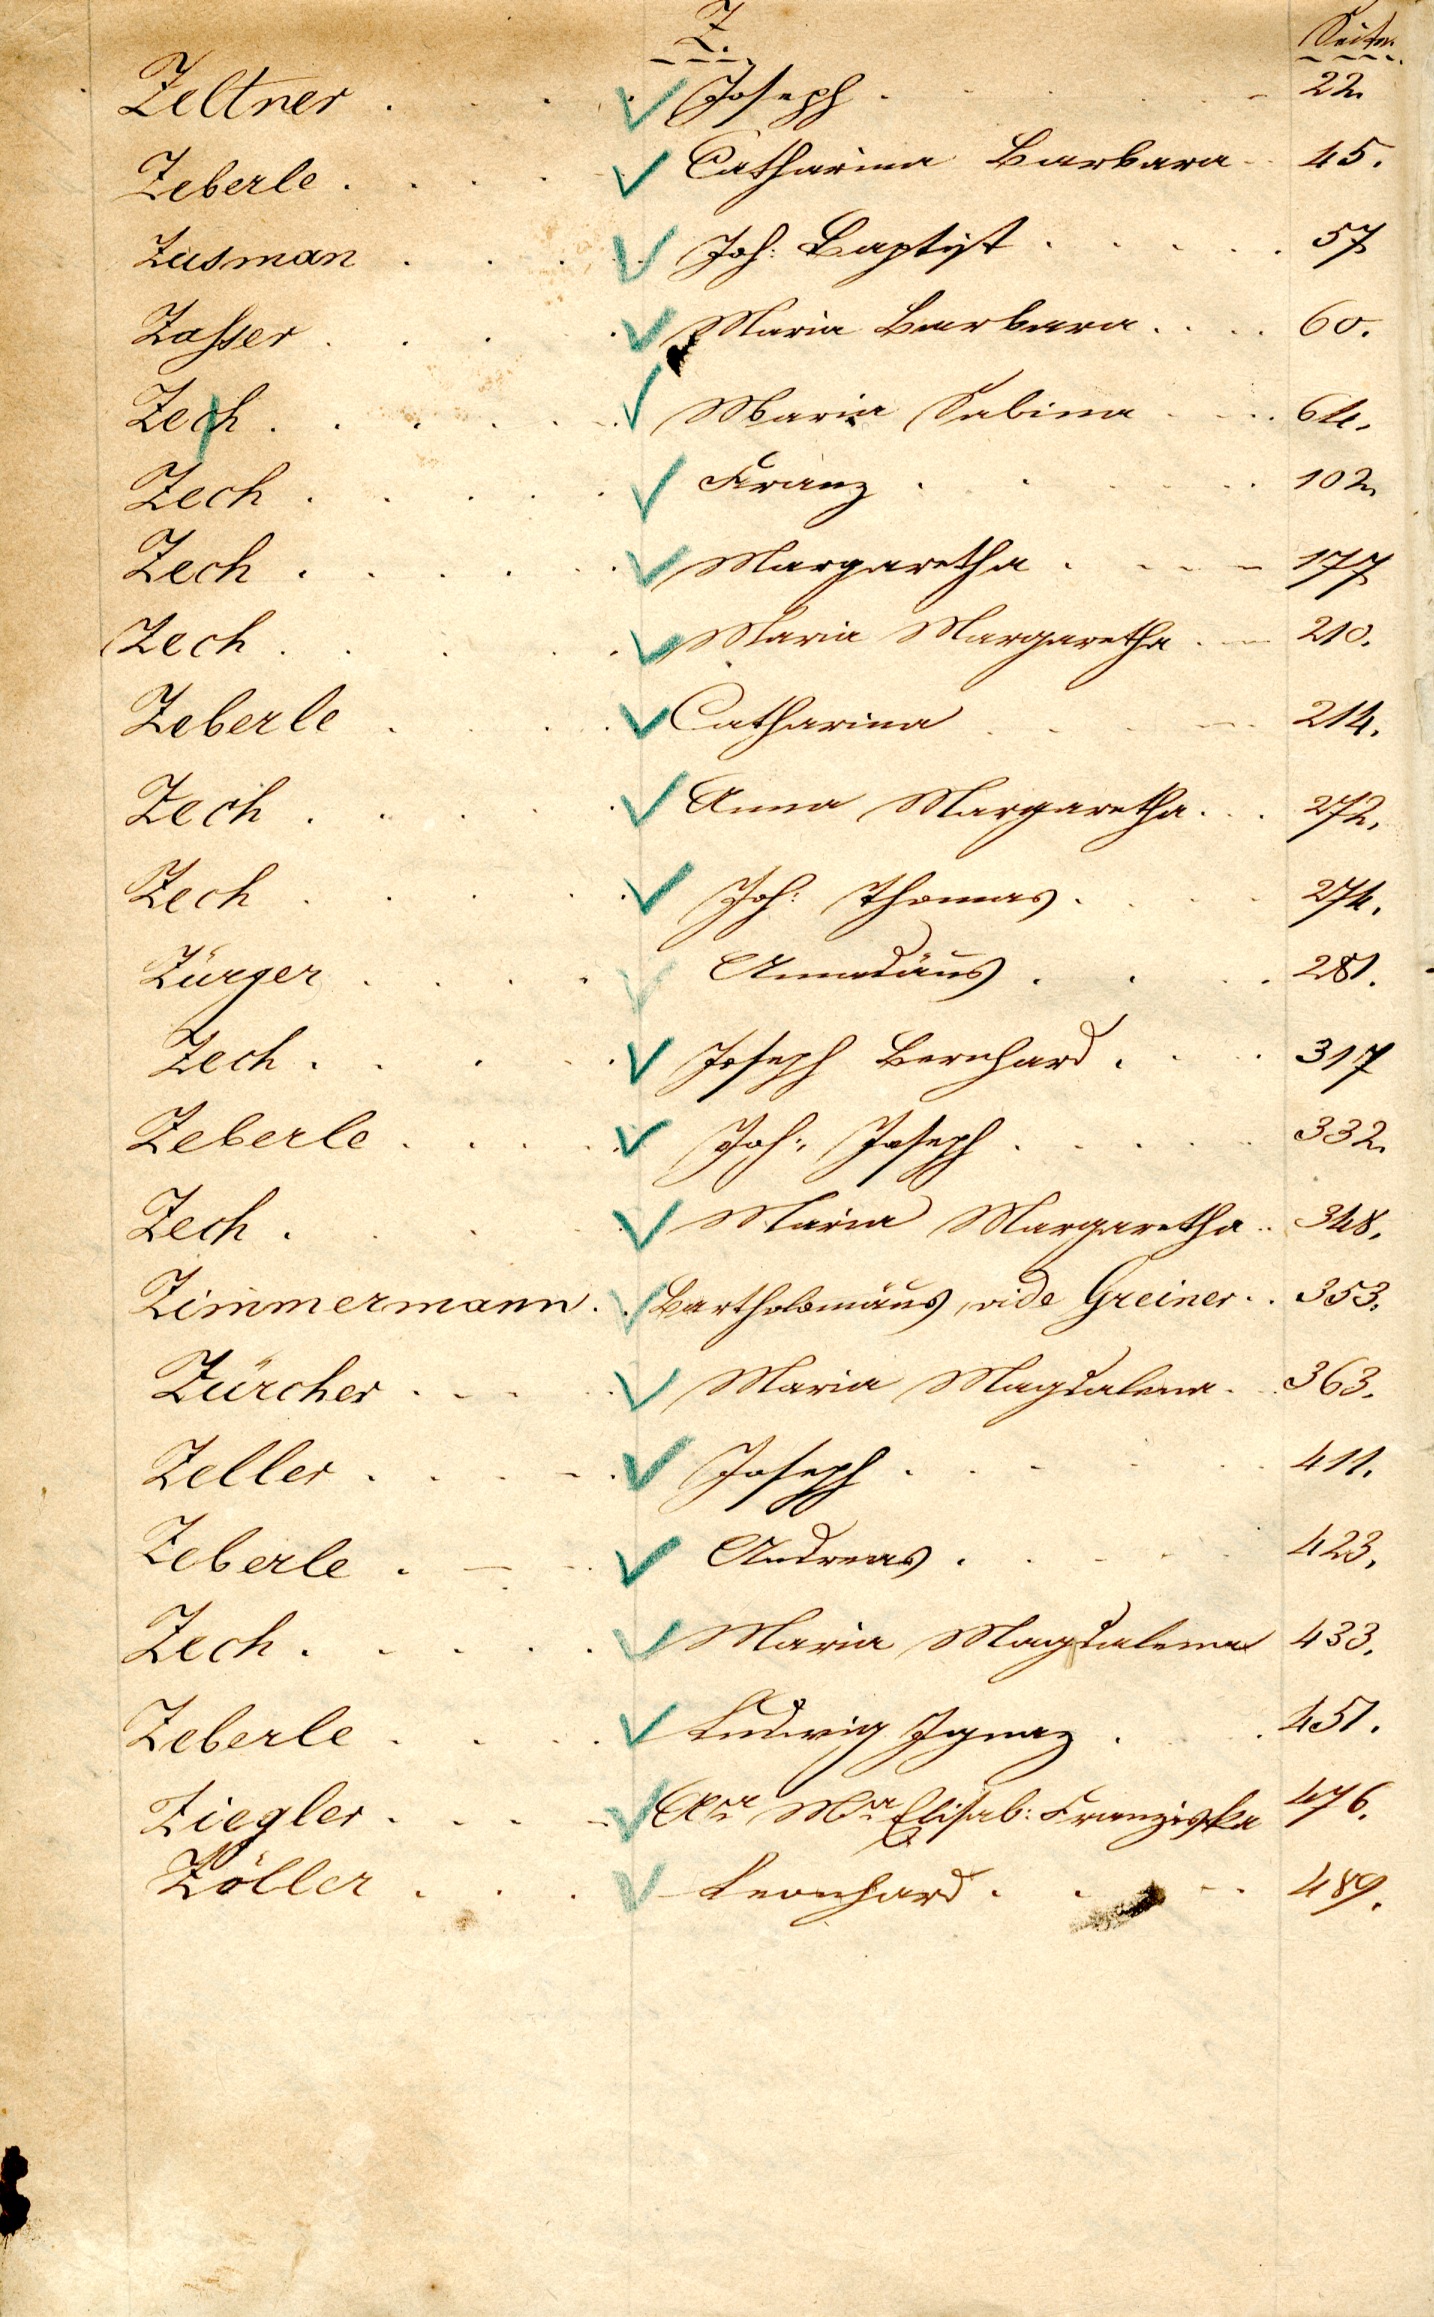 Z.
Seite.
Zeltner . . . . Joseph . . . . 22.
Zeberle . . . . Catharina Barbara . . 45.
Zusman . . . . Joh: Baptist . . . . 57
Zasser . . . . Maria Barbara . . . . 60.
Zech . . . . Maria Sabina . . . . 64.
Zech . . . . Franz . . . . 102.
Zech . . . . Margaretha . . . . 177
Zech . . . . Maria Margaretha . . 210.
Zeberle . . . . Catharina . . . . 214.
Zech . . . . Anna Margaretha . . . 272.
Zech . . . . Joh: Thomas . . . . 274.
Zürger . . . . Amadäus . . . . 281.
Zech . . . . Joseph Bernhard . . . 317
Zeberle . . . . Joh: Joseph . . . . 332.
Zech . . . . Maria Margaretha . . 348.
Zimmermann . . Bartholomäus, vide Greiner . . 353.
Zürcher . . . . Maria Magdalena . . 363.
Zeller . . . . Joseph . . . . 411.
Zeberle . . . . Andreas . . . . 423.
Zech . . . . Maria Magdalena 433.
Zeberle . . . . Ludwig Ignaz . . . 451.
Ziegler . . . . Aa Ma Elisab: Franziska 476.
Zöller . . . . Leonhard . . . . 489.